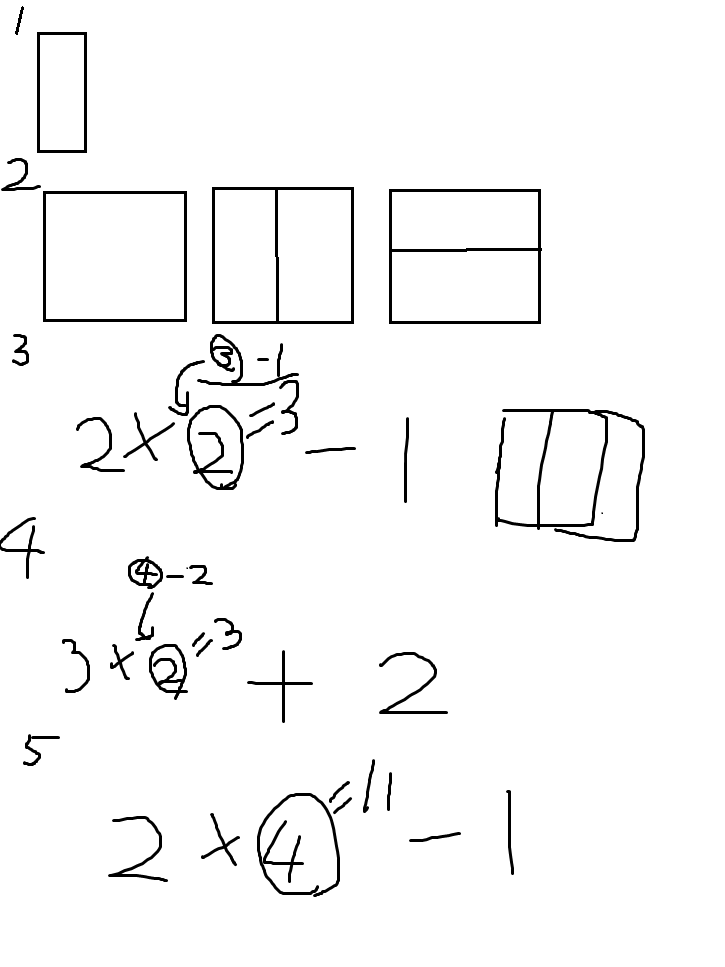 1
2
3
③ - 1
2 × ② = 3 - 1
4
④ - 2
3 × ② = 3 + 2
5
2 × ④ = 11 - 1